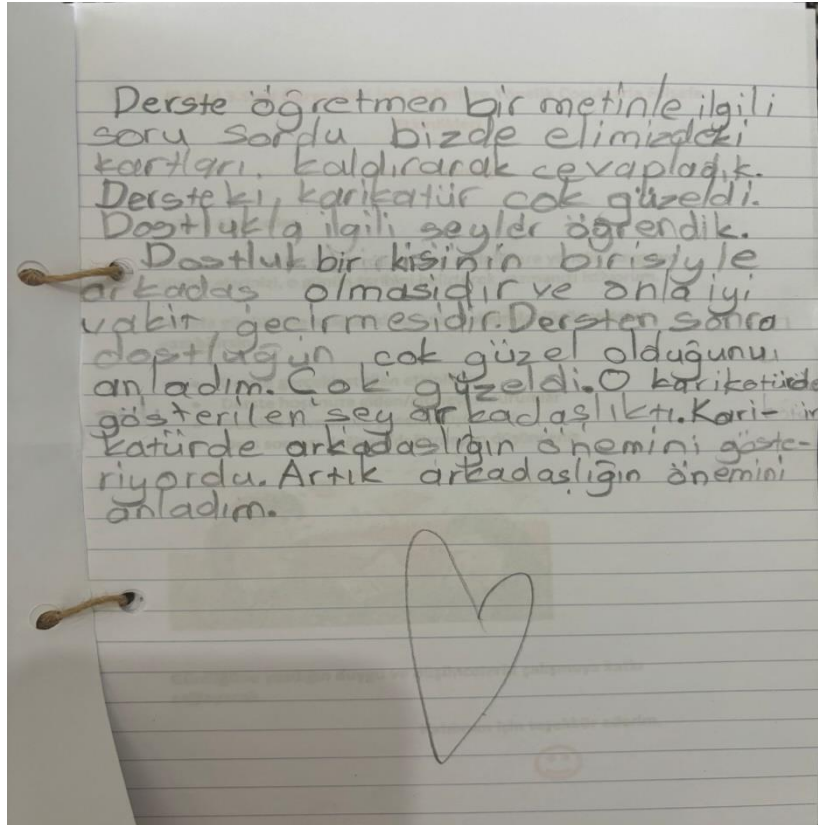 Derste öğretmen bir metinle ilgili
soru sordu bizde elimizdeki
kartları kaldırarak cevapladık.
Dersteki karikatür cok güzeldi.
Dostlukla ilgili şeyler öğrendik.
Dostluk bir kisinin birisiyle
arkadaş olmasıdır ve onla iyi
vakit gecirmesidir. Dersten sonra
dostluğun cok güzel olduğunu
anladım. Çok güzeldi. O karikatürde
gösterilen sey arkadaşlıktı. Kari-
katürde arkadaslığın önemini göste-
riyordu. Artık arkadaşlığın önemini
anladım.